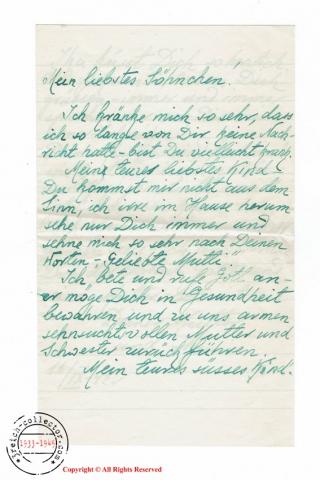 Mein liebstes Söhnchen.
Ich kränke mich so sehr, dass
ich so lange von Dir keine Nach-
richt hatte - bist Du vielleicht krank.
Meine teures liebstes Kind -
Du kommst mir nicht aus dem
Sinn, ich irre im Hause herum
sehe nur Dich immer und
sehne mich so sehr nach Deinen
Worten - "Geliebte Mutti".
Ich bete und rufe Gott an -
er möge Dich in Gesundheit
bewahren und zu uns armen
sehnsuchtsvollen Mutter und
Schwester zurückführen.
Mein teures süsses Kind.
3reich-collector.com
1933-1945
Copyright © All Rights Reserved